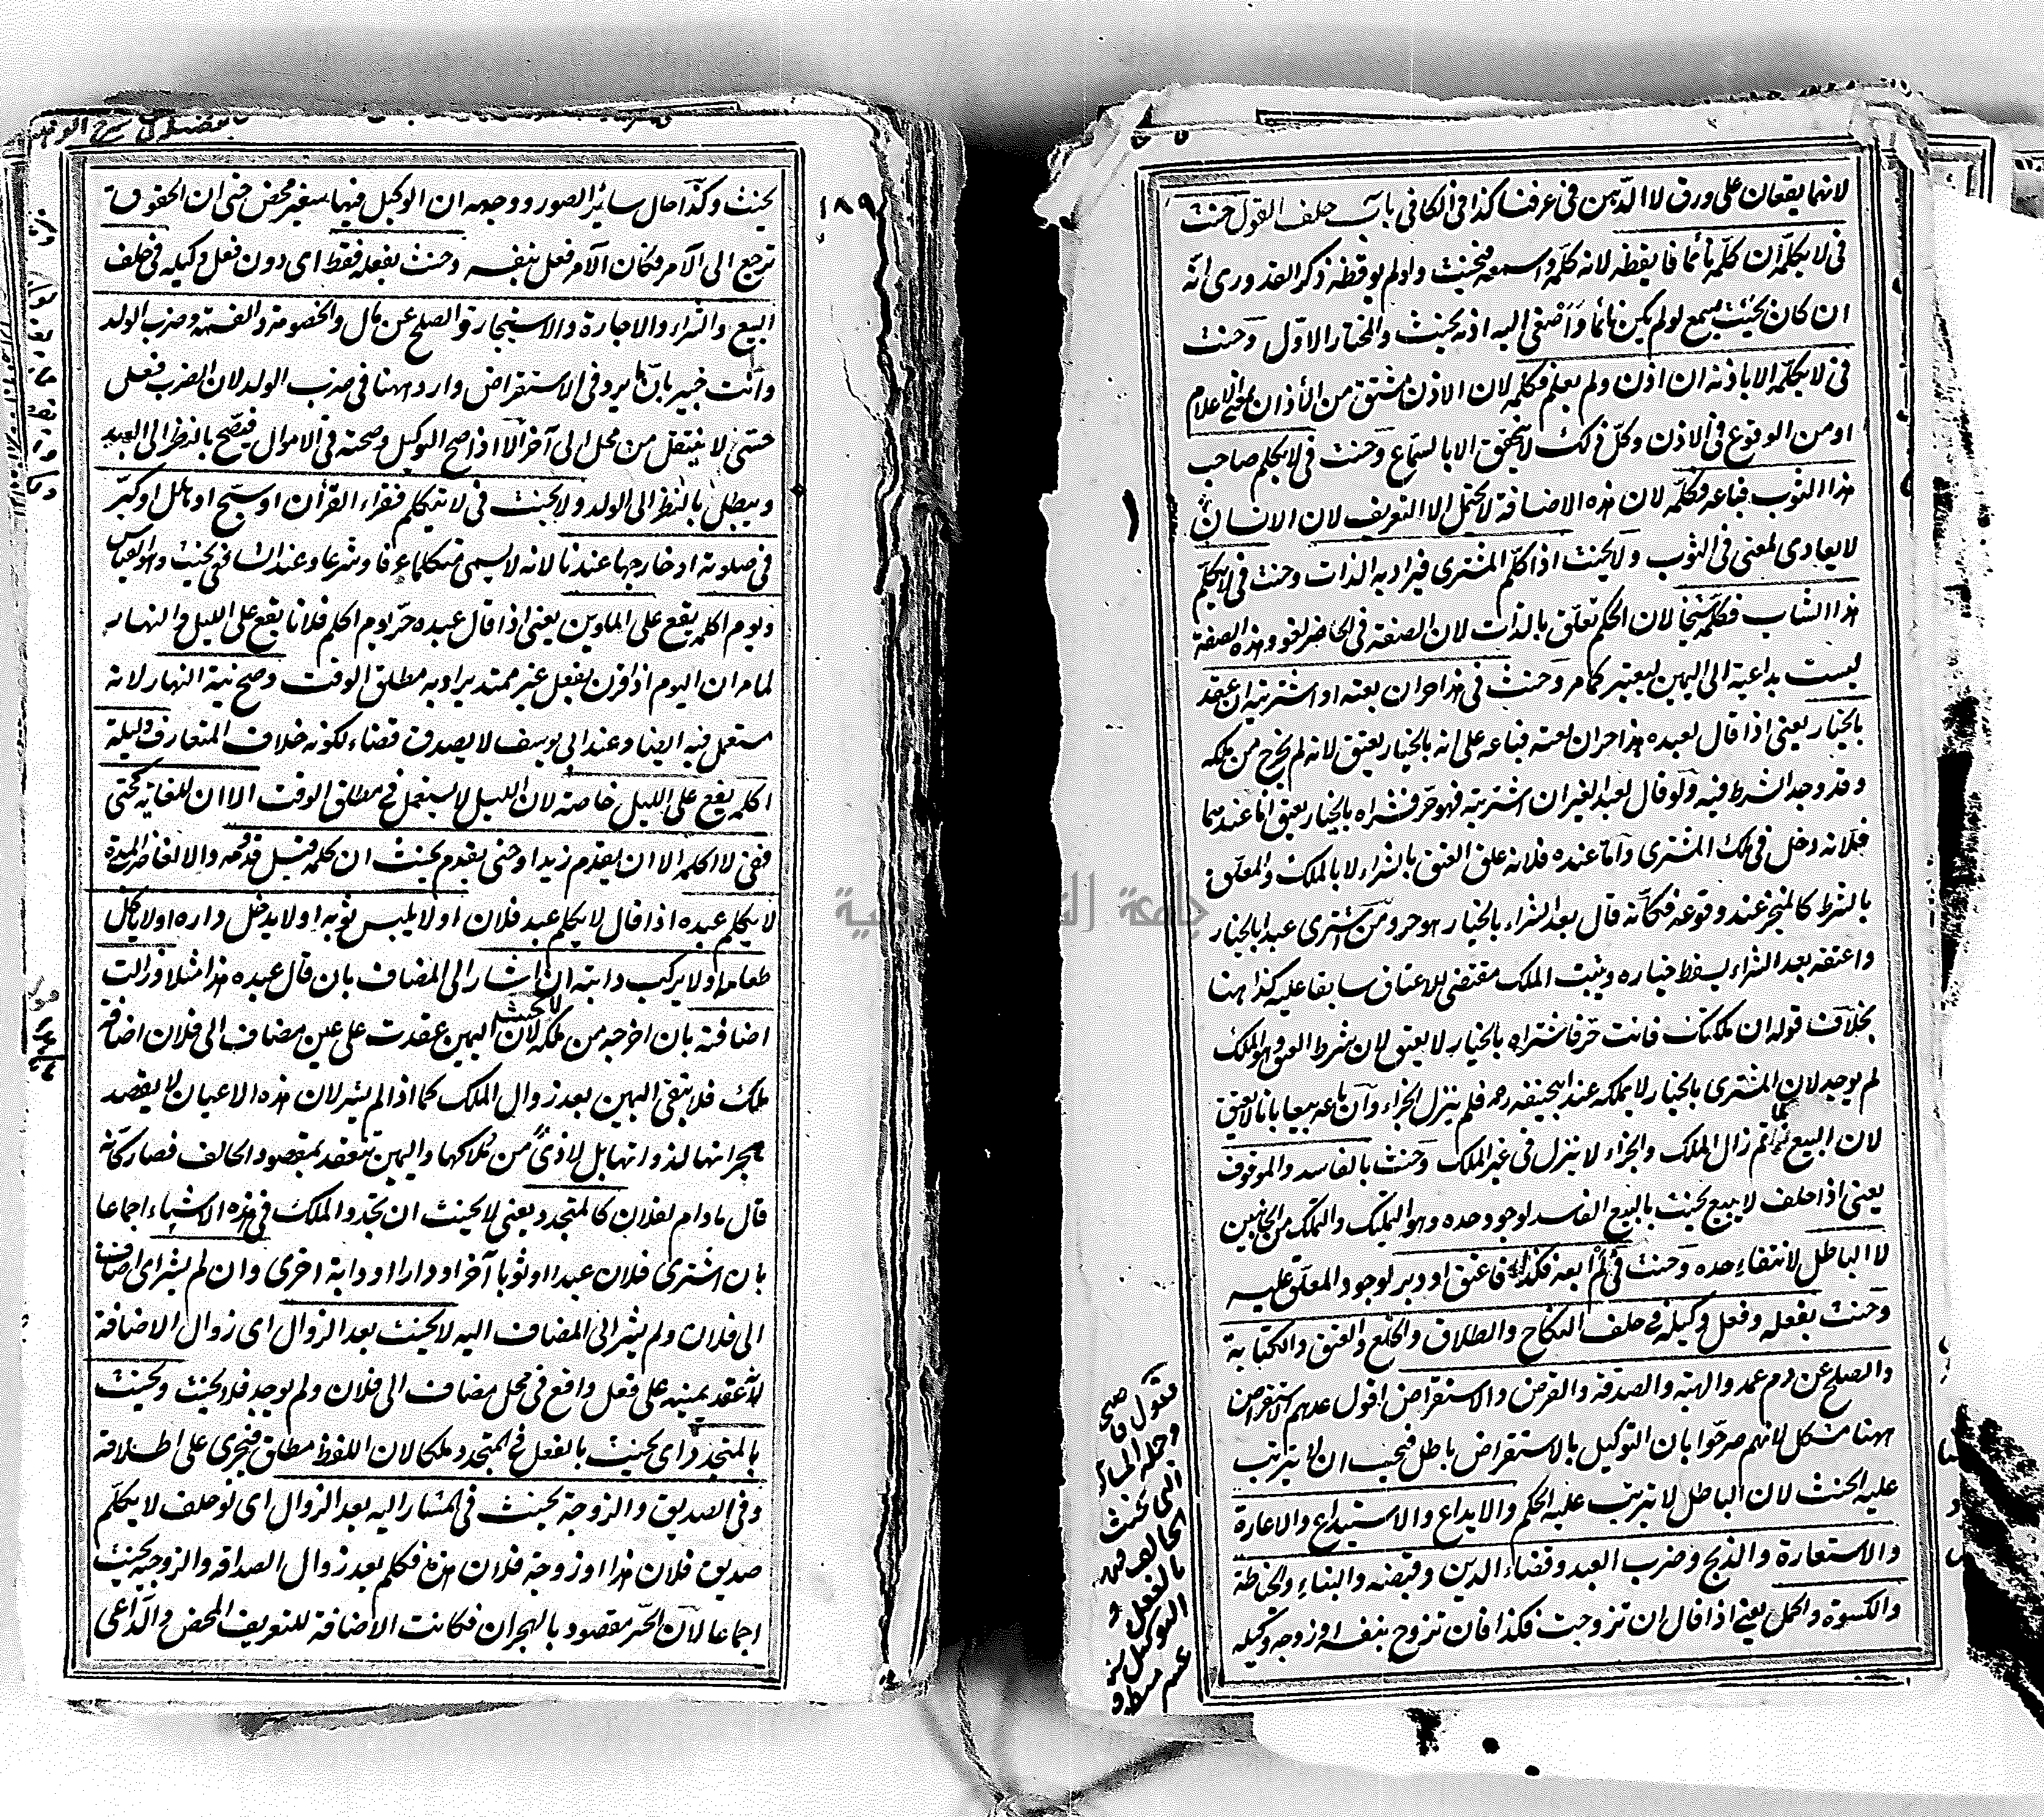 لانهما يقعان على ورق لا الدهن فى عرفنا كذا فى الكافى باب حلف القول حنث
فى لا يكلمه ان كلمه نائما فايقظه لانه كلمه واسمعه فيحنث ولو لم يوقظه ذكر القدورى انه
ان كان بحيث يسمع لو لم يكن نائما واصغى اليه اذنه يحنث والمختار الاول وحنث
فى لا يكلمه الا باذنه ان اذن ولم يعلم فكلمه لان الاذن مشتق من الأذان بمعنى الاعلام
او من الوقوع فى الاذن وكل ذلك لا يتحقق الا بالسماع وحنث فى لا يكلم صاحب
هذا الثوب فباعه فكلمه لان هذه الاضافة لا يحتمل الا التعريف لان الانسان
لا يعادى لمعنى فى الثوب ولا يحنث اذا كلم المشترى فيراد به الذات وحنث فى لا يكلم
هذا الشاب فكلمه شيخا لان الحكم تعلق بالذات لان الصفة فى الحاضر لغو وهذه الصفة
ليست بداعية الى اليمين ليعتبر كما مر وحنث فى هذا حر ان بعته او اشتريته ان عقد
بالخيار يعنى اذا قال لعبده هذا حر ان بعته فباعه على انه بالخيار يعتق لانه لم يخرج من ملكه
وقد وجد الشرط فيه ولو قال لعبد الغير ان اشتريته فهو حر فشراه بالخيار يعتق اما عندهما
فلانه دخل فى ملك المشترى واما عنده فلانه علق العتق بالشراء لا بالملك والمعلق
بالشرط كالمنجز عند وقوعه فكانه قال بعد الشراء بالخيار هو حر ومن اشترى عبدا بالخيار
واعتقه بعد الشراء يسقط خياره ويثبت الملك مقتضى للاعتاق سابقا عليه كذا هنا
بخلاف قوله ان ملكتك فانت حر فاشتراه بالخيار لا يعتق لان شرط العتق وهو الملك
لم يوجد لان المشترى بالخيار لا يملكه عند ابيحنيفه رحمه فلم ينزل الجزاء وان باعه بيعا باتا لا يعتق
لان البيع كما تم زال الملك والجزاء لا ينزل فى غير الملك وحنث بالفاسد والموقوف
يعنى اذا حلف لا يبيع يحنث بالبيع الفاسد لوجود حده وهو التمليك والتملك من الجانبين
لا الباطل لانتفاء حده وحنث فى ان لم ابعه فكذا فاعتق او دبر لوجود المعلق عليه
وحنث بفعله وفعل وكيله فى حلف النكاح والطلاق والخلع والعتق والكتابة
والصلح عن دم عمد والهبة والصدقة والقرض والاستقراض اقول عدهم الاستقراض
ههنا مشكل لانهم صرحوا بان التوكيل بالاستقراض باطل فيجب ان لا يترتب
عليه الحنث لان الباطل لا يترتب عليه الحكم والايداع والاستيداع والاعارة
والاستعارة والذبح وضرب العبد وقضاء الدين وقبضه والبناء والخياطة
والكسوة والحمل يعنى اذا قال ان تزوجت فكذا فان تزوج بنفسه او زوجه وكيله
١٨٩
يحنث وكذا حال سائر الصور ووجهه ان الوكيل فيها سفير محض حتى ان الحقوق
ترجع الى الآمر فكان الآمر فعل بنفسه وحنث بفعله فقط اى دون فعل وكيله فى حلف
البيع والشراء والاجارة والاستيجار والصلح عن مال والخصومة والقسمة وضرب الولد
وانت خبير بان ما يرد فى الاستقراض وارد ههنا فى ضرب الولد لان الضرب فعل
حسى لا ينتقل من محل الى آخر الا اذا صح التوكيل وصحته فى الاموال فيصح بالنظر الى العبد
ويبطل بالنظر الى الولد ولا يحنث فى لا يتكلم فقراء القرأن او سبح او هلل او كبر
فى صلوته او خارجها عندنا لانه لا يسمى متكلما عرفا وشرعا وعند الشافعى يحنث وهو القياس
ويوم اكلمه يقع على الملوين يعنى اذا قال عبده حر يوم اكلم فلانا يقع على الليل والنهار
لما مر ان اليوم اذا قرن بفعل غير ممتد يراد به مطلق الوقت وصح نية النهار لانه
مستعمل فيه ايضا وعند ابى يوسف لا يصدق قضاء لكونه خلاف المتعارف وليلة
اكلمه يقع على الليل خاصة لان الليل لا يستعمل فى مطلق الوقت الا ان للغاية كحتى
ففى لا اكلمه الا ان يقدم زيد او حتى يقدم يحنث ان كلمه قبل قدومه والا لا
لا يكلم عبده اذا قال لا يكلم عبد فلان او لا يلبس ثوبه او لا يدخل داره او لا ياكل
طعامه او لا يركب دابته ان اشار الى المضاف بان قال عبده هذا مثلا وزالت
اضافته بان اخرجه من ملكه لا يحنث لان اليمين عقدت على عين مضاف الى فلان اضافة
ملك فلا يبقى اليمين بعد زوال الملك كما اذا لم يشر لان هذه الاعيان لا يقصد
هجرانها لذواتها بل لاذى من ملاكها واليمين تنعقد لمقصود الحالف فصار كانه
قال ما دام لفلان كالمتجدد يعنى لا يحنث ان تجدد الملك فى هذه الاشياء اجماعا
بان اشترى فلان عبدا او ثوبا آخر او دارا او دابة اخرى وان لم يشر اى اضاف
الى فلان ولم يشر الى المضاف اليه لا يحنث بعد الزوال اى زوال الاضافة
لانه عقد يمينه على فعل واقع فى محل مضاف الى فلان ولم يوجد فلا يحنث ويحنث
بالمتجدد اى يحنث بالفعل فى المتجدد ملكا لان اللفظ مطلق فيجرى على اطلاقه
وفى الصديق والزوجة يحنث فى المشار اليه بعد الزوال اى لو حلف لا يكلم
صديق فلان هذا او زوجة فلان هذه فكلم بعد زوال الصداقة والزوجية يحنث
اجماعا لان الحر مقصود بالهجران فكانت الاضافة للتعريف المحض والداعى